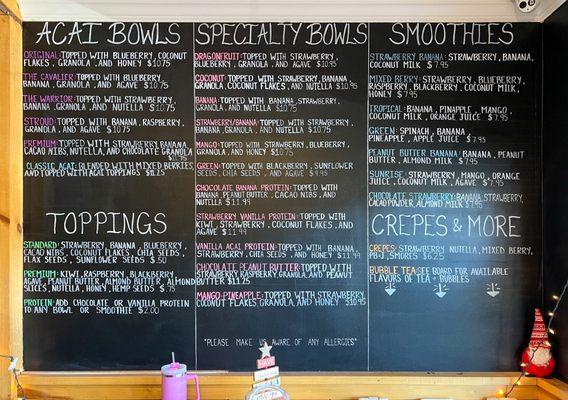 ACAI BOWLS
ORIGINAL: TOPPED WITH BLUEBERRY, COCONUT
FLAKES, GRANOLA, AND HONEY $10.75
THE CAVALIER: TOPPED WITH BLUEBERRY,
BANANA, GRANOLA, AND AGAVE $10.75
THE WARRIOR: TOPPED WITH STRAWBERRY,
BANANA, GRANOLA, AND NUTELLA $10.75
STROUD: TOPPED WITH BANANA, RASPBERRY,
GRANOLA, AND AGAVE $10.75
PREMIUM: TOPPED WITH STRAWBERRY BANANA,
CACAO NIBS, NUTELLA, AND CHOCOLATE GRANOLA
$11.75
CLASSIC ACAI: BLENDED WITH MIXED BERRIES,
AND TOPPED WITH ACAI TOPPINGS $11.25
TOPPINGS
STANDARD: STRAWBERRY, BANANA, BLUEBERRY,
CACAO NIBS, COCONUT FLAKES, CHIA SEEDS,
FLAX SEEDS, SUNFLOWER SEEDS $.50
PREMIUM: KIWI, RASPBERRY, BLACKBERRY,
AGAVE, PEANUT BUTTER, ALMOND BUTTER, ALMOND
SLICES, NUTELLA, HONEY, HEMP SEEDS $.75
PROTEIN: ADD CHOCOLATE OR VANILLA PROTEIN
TO ANY BOWL OR SMOOTHIE $2.00
SPECIALTY BOWLS
DRAGONFRUIT: TOPPED WITH STRAWBERRY,
BLUEBERRY, GRANOLA, AND AGAVE $10.95
COCONUT: TOPPED WITH STRAWBERRY, BANANA,
GRANOLA, COCONUT FLAKES, AND NUTELLA $10.95
BANANA: TOPPED WITH BANANA, STRAWBERRY,
GRANOLA, AND NUTELLA $10.75
STRAWBERRY/BANANA: TOPPED WITH STRAWBERRY,
BANANA, GRANOLA, AND NUTELLA $10.75
MANGO: TOPPED WITH STRAWBERRY, BLUEBERRY,
GRANOLA, AND HONEY $10.75
GREEN: TOPPED WITH BLACKBERRY, SUNFLOWER
SEEDS, CHIA SEEDS, AND AGAVE $9.95
CHOCOLATE BANANA PROTEIN: TOPPED WITH
BANANA, PEANUT BUTTER, CACAO NIBS, AND
NUTELLA $11.44
STRAWBERRY VANILLA PROTEIN: TOPPED WITH
KIWI, STRAWBERRY, COCONUT FLAKES, AND
AGAVE $11.44
VANILLA ACAI PROTEIN: TOPPED WITH BANANA,
STRAWBERRY, CHIA SEEDS, AND HONEY $11.44
CHOCOLATE PEANUT BUTTER: TOPPED WITH
STRAWBERRY, RASPBERRY, GRANOLA, AND PEANUT
BUTTER $11.25
MANGO-PINEAPPLE: TOPPED WITH STRAWBERRY,
COCONUT FLAKES, GRANOLA, AND HONEY $10.95
"PLEASE MAKE US AWARE OF ANY ALLERGIES"
SMOOTHIES
STRAWBERRY BANANA: STRAWBERRY, BANANA,
COCONUT MILK $7.95
MIXED BERRY: STRAWBERRY, BLUEBERRY,
RASPBERRY, BLACKBERRY, COCONUT MILK,
HONEY $7.95
TROPICAL: BANANA, PINEAPPLE, MANGO,
COCONUT MILK, ORANGE JUICE $7.95
GREEN: SPINACH, BANANA,
PINEAPPLE, APPLE JUICE $7.95
PEANUT BUTTER BANANA: BANANA, PEANUT
BUTTER, ALMOND MILK $7.95
SUNRISE: STRAWBERRY, MANGO, ORANGE
JUICE, COCONUT MILK, AGAVE $7.95
CHOCOLATE STRAWBERRY: BANANA, STRAWBERRY,
CACAO POWDER, ALMOND MILK $7.95
CREPES & MORE
CREPES: STRAWBERRY NUTELLA, MIXED BERRY,
PB+J, S'MORES $6.25
BUBBLE TEA: SEE BOARD FOR AVAILABLE
FLAVORS OF TEA + BUBBLES